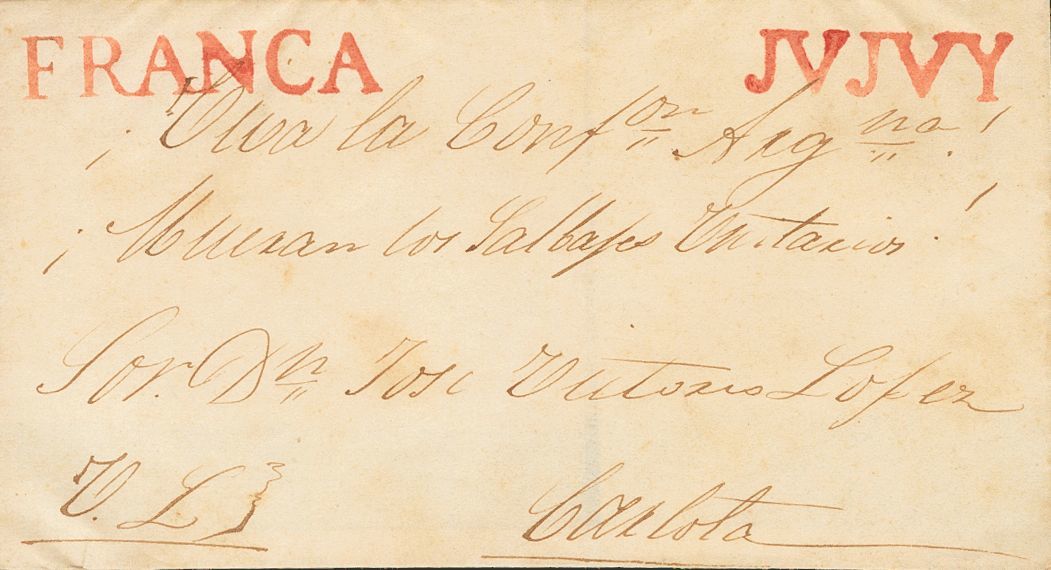 FRANCA JVJVY
¡Viva la Conf.on Arg.na!
¡Mueran los Salbajes Unitarios!
Sor. Dn Jose Lopez
V. L.
Carlota